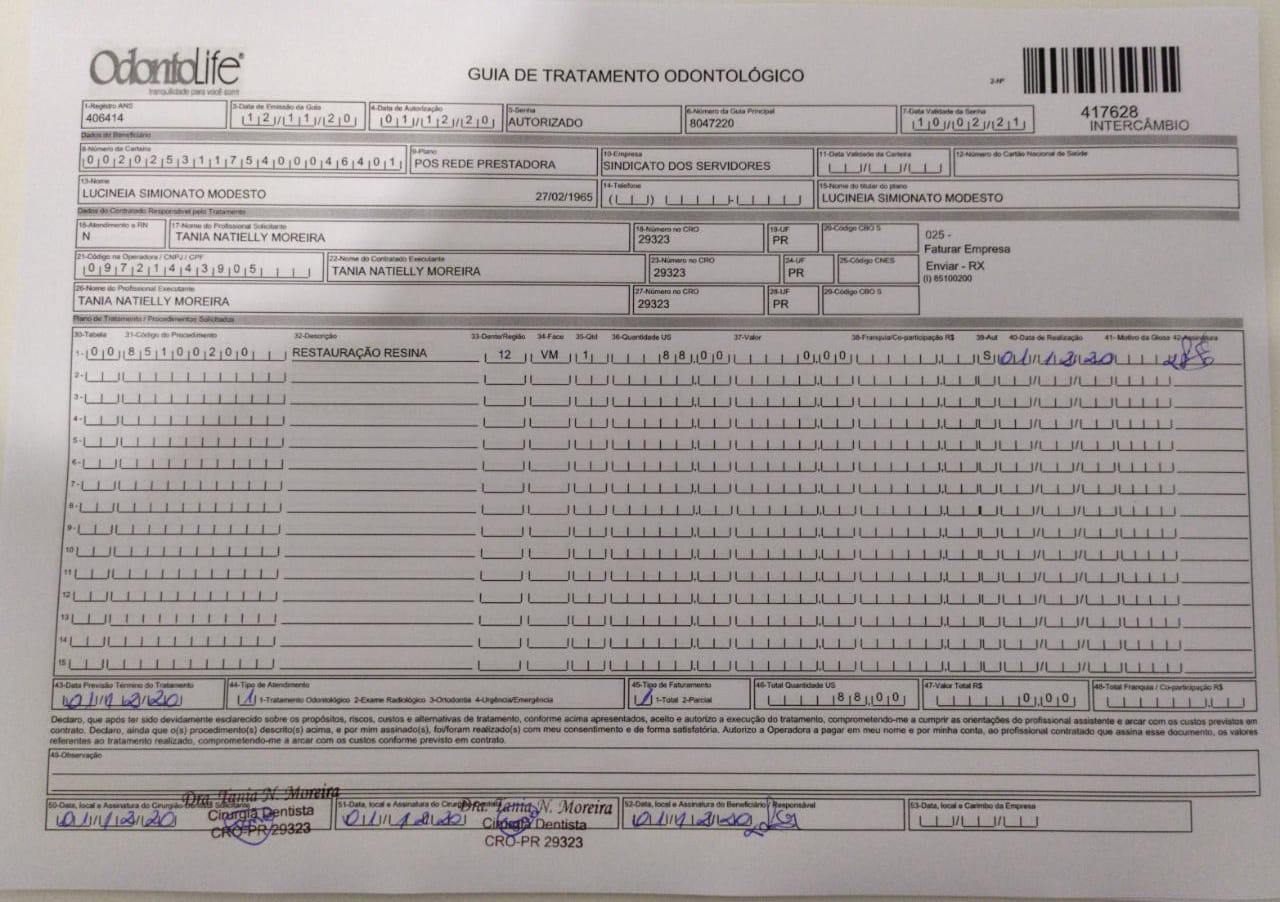 OdontoLife®
tranquilidade para você sorrir
GUIA DE TRATAMENTO ODONTOLÓGICO
2-Nº
417628
INTERCÂMBIO
1-Registro ANS
406414
3-Data de Emissão da Guia
12/11/20
4-Data de Autorização
01/12/20
5-Senha
AUTORIZADO
6-Número da Guia Principal
8047220
7-Data Validade da Senha
10/02/21
Dados do Beneficiário
8-Número da Carteira
00202531175400046401
9-Plano
POS REDE PRESTADORA
10-Empresa
SINDICATO DOS SERVIDORES
11-Data Validade da Carteira
12-Número do Cartão Nacional de Saúde
13-Nome
LUCINEIA SIMIONATO MODESTO 27/02/1965
14-Telefone
15-Nome do titular do plano
LUCINEIA SIMIONATO MODESTO
Dados do Contratado Responsável pelo Tratamento
16-Atendimento a RN
N
17-Nome do Profissional Solicitante
TANIA NATIELLY MOREIRA
18-Número no CRO
29323
19-UF
PR
20-Código CBO S
025 -
Faturar Empresa
Enviar - RX
(I) 85100200
21-Código na Operadora / CNPJ / CPF
09721443905
22-Nome do Contratado Executante
TANIA NATIELLY MOREIRA
23-Número no CRO
29323
24-UF
PR
25-Código CNES
26-Nome do Profissional Executante
TANIA NATIELLY MOREIRA
27-Número no CRO
29323
28-UF
PR
29-Código CBO S
Plano de Tratamento / Procedimentos Solicitados
30-Tabela 31-Código do Procedimento 32-Descrição 33-Dente/Região 34-Face 35-Qtd 36-Quantidade US 37-Valor 38-Franquia/Co-participação R$ 39-Aut 40-Data de Realização 41- Motivo da Glosa 42-Assinatura
1- 00 85100200 RESTAURAÇÃO RESINA 12 VM 1 88,00 0,00 S 01/12/20
2-
3-
4-
5-
6-
7-
8-
9-
10
11
12
13
14
15
43-Data Previsão Término do Tratamento
01/12/20
44-Tipo de Atendimento
1 1-Tratamento Odontológico 2-Exame Radiológico 3-Ortodontia 4-Urgência/Emergência
45-Tipo de Faturamento
1 1-Total 2-Parcial
46-Total Quantidade US
88,00
47-Valor Total R$
0,00
48-Total Franquia / Co-participação R$
Declaro, que após ter sido devidamente esclarecido sobre os propósitos, riscos, custos e alternativas de tratamento, conforme acima apresentados, aceito e autorizo a execução do tratamento, comprometendo-me a cumprir as orientações do profissional assistente e arcar com os custos previstos em
contrato. Declaro, ainda que o(s) procedimento(s) descrito(s) acima, e por mim assinado(s), foi/foram realizado(s) com meu consentimento e de forma satisfatória. Autorizo a Operadora a pagar em meu nome e por minha conta, ao profissional contratado que assina esse documento, os valores
referentes ao tratamento realizado, comprometendo-me a arcar com os custos conforme previsto em contrato.
49-Observação
50-Data, local e Assinatura do Cirurgião-Dentista Solicitante
01/12/20
Dra. Tania N. Moreira
Cirurgiã Dentista
CRO-PR 29323
51-Data, local e Assinatura do Cirurgião-Dentista
01/12/20
Dra. Tania N. Moreira
Cirurgiã Dentista
CRO-PR 29323
52-Data, local e Assinatura do Beneficiário / Responsável
01/12/20
53-Data, local e Carimbo da Empresa